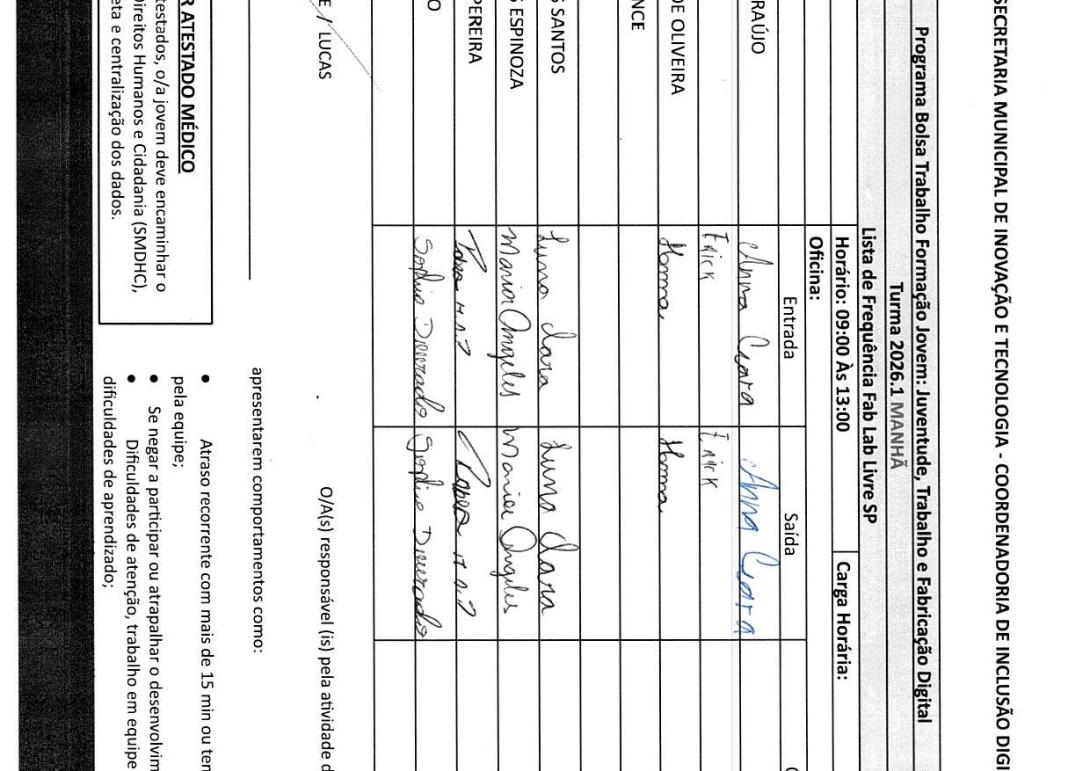 SECRETARIA MUNICIPAL DE INOVAÇÃO E TECNOLOGIA - COORDENADORIA DE INCLUSÃO DIGI
Programa Bolsa Trabalho Formação Jovem: Juventude, Trabalho e Fabricação Digital
Turma 2026.1 MANHÃ
Lista de Frequência Fab Lab Livre SP
Horário: 09:00 Às 13:00 Carga Horária:
Oficina:
Entrada Saída
RAÚJO Anna Ceara Anna Ceara
Erick Erick
DE OLIVEIRA Homa Homa
NCE
S SANTOS Luna Clara Luna Clara
S ESPINOZA Maria Angeles Maria Angeles
PEREIRA
O Sophie Dourado Sophie Dourado
E / LUCAS
O/A(s) responsável (is) pela atividade d
apresentarem comportamentos como:
R ATESTADO MÉDICO
testados, o/a jovem deve encaminhar o
Direitos Humanos e Cidadania (SMDHC),
eta e centralização dos dados.
• Atraso recorrente com mais de 15 min ou ten
pela equipe;
• Se negar a participar ou atrapalhar o desenvolvim
• Dificuldades de atenção, trabalho em equipe
dificuldades de aprendizado;